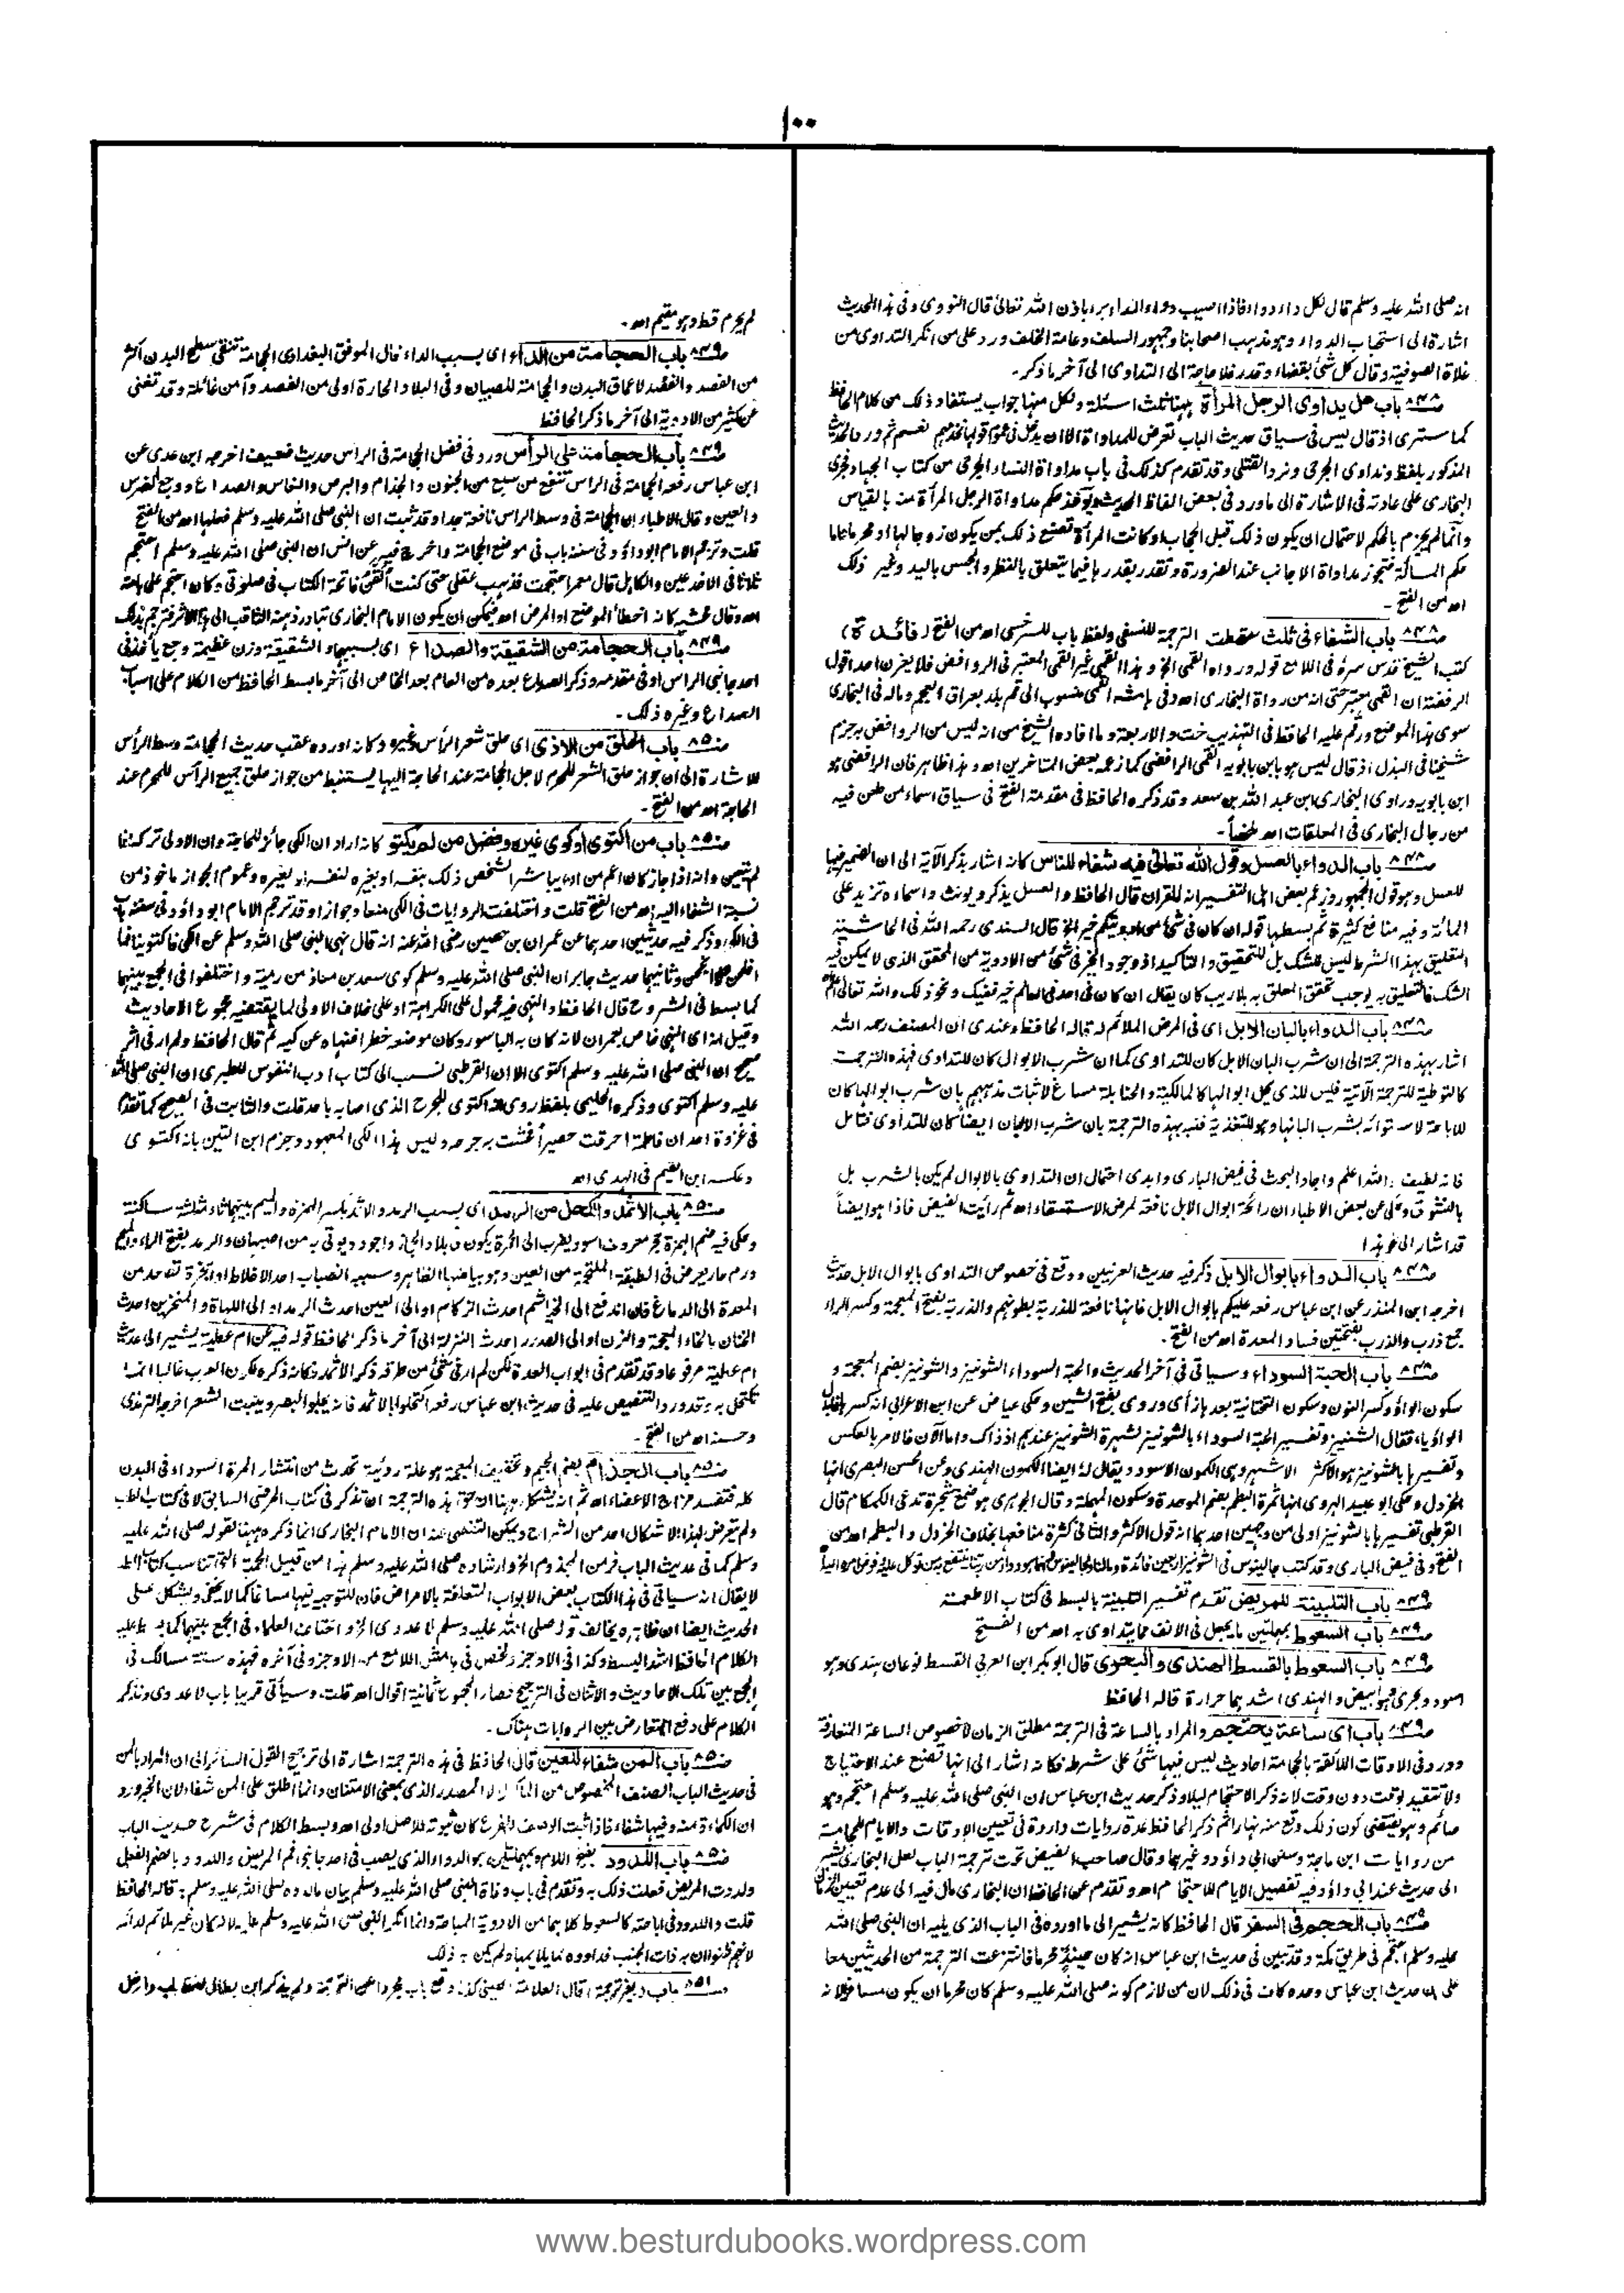 ١٠٠
انه صلى الله عليه وسلم قال لكل داء دواء فاذا اصيب دواء الداء برء باذن الله تعالى قال النووى وفى هذا الحديث
اشارة الى استحباب الدواء وهو مذهب اصحابنا وجمهور السلف وعامة الخلف ورد على من انكر التداوى من
غلاة الصوفية وقال كل شئ بقضاء وقدر فلا حاجة الى التداوى الى آخر ما ذكر۔
باب هل يداوى الرجل المرأة ههنا ثلث اسئلة ولكل منها جواب يستفاد ذلك من كلام الحافظ
كما سترى اذ قال ليس فى سياق حديث الباب تعرض للمداواة الا ان يدخل فى عموم قولها نخدمهم نعم ورد الحديث
المذكور بلفظ ونداوى الجرحى ونرد القتلى وقد تقدم كذلك فى باب مداواة النساء الجرحى من كتاب الجهاد فجرى
البخارى على عادته فى الاشارة الى ما ورد فى بعض الفاظ الحديث ويؤخذ حكم مداواة الرجل المرأة منه بالقياس
وانما لم يجزم بالحكم لاحتمال ان يكون ذلك قبل الحجاب او كانت المرأة تصنع ذلك بمن يكون زوجا لها او محرما واما
حكم المسألة فتجوز مداواة الاجانب عند الضرورة وتقدر بقدرها فيما يتعلق بالنظر والجس باليد وغير ذلك
اھ من الفتح۔
باب الشفاء فى ثلث سقطت الترجمة للنسفى ولفظ باب للسرخسى اھ من الفتح (فائدة)
كتب الشيخ قدس سره فى اللامع قوله ورواه القمى الخ وهذا القمى غير القمى المعتبر فى الروافض فلا يغرن احدا قول
الرفضة ان القمى معتبر حتى انه من رواة البخارى اھ وفى هامشه القمى منسوب الى قم بلد بعراق العجم وماله فى البخارى
سوى هذا الموضع ورقم عليه الحافظ فى التهذيب خت والاربعة وما افاده الشيخ من انه ليس من الروافض به جزم
شيخنا فى البذل اذ قال ليس هو بابن بابويه القمى الرافضى كما زعمه بعض المتاخرين اھ وهذا ظاهر فان الرافضى هو
ابن بابويه وراوى البخارى ابن عبد الله بن سعد وقد ذكره الحافظ فى مقدمة الفتح فى سياق اسماء من طعن فيه
من رجال البخارى فى المعلقات اھ ملخصاً۔
باب الدواء بالعسل وقول الله تعالى فيه شفاء للناس كانه اشار بذكر الآية الى ان الضمير فيها
للعسل وهو قول الجمهور وزعم بعض اهل التفسير انه للقرآن قال الحافظ والعسل يذكر ويونث واسماءه تزيد على
المائة وفيه منافع كثيرة ثم بسطها قوله ان كان فى شئ من ادويتكم خير الخ قال السندى رحمه الله فى الحاشية
التعليق بهذا الشرط ليس للشك بل للتحقيق والتاكيد اذ وجود الخير فى شئ من الادوية من المحقق الذى لا يمكن فيه
الشك فالتعليق به يوجب تحقق المعلق به بلا ريب كان يقال ان كان فى احد فى العالم خير ففيك ونحو ذلك والله تعالى اعلم
باب الدواء بالبان الابل اى فى المرض الملائم له قاله الحافظ وعندى ان المصنف رحمه الله
اشار بهذه الترجمة الى ان شرب البان الابل كان للتداوى كما ان شرب الابوال كان للتداوى فهذه الترجمة
كالتوطية للترجمة الآتية فليس للذى يحل ابوالها كالمالكية والحنابلة مساغ لاثبات مذهبهم بان شرب ابوالها كان
للاباحة لاستوائه بشرب البانها وهو للتغذية فنبه بهذه الترجمة بان شرب الالبان ايضا كان للتداوى فتامل
فانه لطيف والله اعلم واجاد البحث فى فيض البارى وابدى احتمال ان التداوى بالابوال لم يكن بالشرب بل
بالنشوق وحكى عن بعض الاطباء ان رائحة ابوال الابل نافعة لمرض الاستسقاء اھ ثم رأيت الفيض فاذا هو ايضاً
قد اشار الى نحو هذا
باب الدواء بابوال الابل ذكر فيه حديث العرنيين ووقع فى خصوص التداوى بابوال الابل حديث
اخرجه ابن المنذر عن ابن عباس رفعه عليكم بابوال الابل فانها نافعة للذربة بطونهم والذربة بفتح المعجمة وكسر الراء
جمع ذرب والذرب بفتحتين فساد المعدة اھ من الفتح۔
باب الحبة السوداء وسياتى فى آخر الحديث والحبة السوداء الشونيز والشونيز بضم المعجمة و
سكون الواو وكسر النون وسكون التحتانية بعدها زاى وروى بفتح الشين وحكى عياض عن ابن الاعرابى انه كسرها فابدل
الواو ياء فقال الشنيز وتفسير الحبة السوداء بالشونيز لشهرة الشونيز عندهم اذ ذاك واما الآن فالامر بالعكس
وتفسيرها بالشونيز هو الاكثر الاشهر وهى الكمون الاسود ويقال له ايضا الكمون الهندى وعن الحسن البصرى انها
الخردل وحكى ابو عبيد الهروى انها ثمرة البطم بضم الموحدة وسكون المهملة وقال الجوهرى هو ضمغ شجرة تدعى الكمكام قال
القرطبى تفسيرها بالشونيز اولى من وجهين احدهما انه قول الاكثر والثانى كثرة منافعها بخلاف الخردل والبطم اھ من
باب التلبينة للمريض تقدم تفسير التلبينة بالبسط فى كتاب الاطعمة
باب السعوط بمهملتين ما يجعل فى الانف مما يتداوى به اھ من الفتح
باب السعوط بالقسط الهندى والبحرى قال ابو بكر ابن العربى القسط نوعان هندى وهو
اسود وبحرى وهو ابيض والهندى اشدهما حرارة قاله الحافظ
باب اى ساعة يحتجم والمراد بالساعة فى الترجمة مطلق الزمان لا خصوص الساعة المتعارفة
وورد فى الاوقات اللائقة بالحجامة احاديث ليس فيها شئ على شرطه فكانه اشار الى انها تصنع عند الاحتياج
ولا تتقيد بوقت دون وقت لانه ذكر الاحتجام ليلا وذكر حديث ابن عباس ان النبى صلى الله عليه وسلم احتجم وهو
صائم وهو يقتضى كون ذلك وقع منه نهارا ثم ذكر الحافظ عدة روايات واردة فى تعيين الاوقات والايام للحجامة
من روايات ابن ماجة وسنن ابى داؤد وغيرها وقال صاحب الفيض تحت ترجمة الباب لعل البخارى يشير
الى حديث عند ابى داؤد فيه تفصيل الايام للاحتجام اھ وتقدم عن الحافظ ان البخارى مال فيه الى عدم تعيين الزمان
باب الحجم فى السفر قال الحافظ كانه يشير الى ما اورده فى الباب الذى يليه ان النبى صلى الله
عليه وسلم احتجم فى طريق مكة وقد تبين فى حديث ابن عباس انه كان حينئذ محرما فانتزعت الترجمة من الحديثين معا
على ان حديث ابن عباس وحده كاف فى ذلك لان من لازم كونه صلى الله عليه وسلم كان محرما ان يكون مسافرا لانه
لم يحرم قط وهو مقيم اھ۔
باب الحجامة من الداء اى بسبب الداء قال الموفق البغدادى الحجامة تنقى سطح البدن اكثر
من الفصد والفصد لاعماق البدن والحجامة للصبيان وفى البلاد الحارة اولى من الفصد وآمن غائلة وقد تغنى
عن كثير من الادوية الى آخر ما ذكر الحافظ
باب الحجامة على الرأس ورد فى فضل الحجامة فى الراس حديث ضعيف اخرجه ابن عدى عن
ابن عباس رفعه الحجامة فى الراس تنفع من سبع من الجنون والجذام والبرص والنعاس والصداع ووجع الضرس
والعين وقال الاطباء ان الحجامة فى وسط الراس نافعة جدا وقد ثبت ان النبى صلى الله عليه وسلم فعلها اھ من الفتح
قلت وترجم الامام ابو داؤد فى سننه باب فى موضع الحجامة واخرج فيه عن انس ان النبى صلى الله عليه وسلم احتجم
ثلاثا فى الاخدعين والكاهل قال معمر احتجمت فذهب عقلى حتى كنت القن فاتحة الكتاب فى صلوتى وكان احتجم على هامته
باب الحجامة من الشقيقة والصداع اى بسببهما والشقيقة وزن عظيمة وجع يأخذ فى
احد جانبى الراس او فى مقدمه وذكر الصداع بعده من العام بعد الخاص الى آخر ما بسط الحافظ من الكلام على اسباب
الصداع وغير ذلك۔
باب الحلق من الاذى اى حلق شعر الرأس وغيره وكانه اورده عقب حديث الحجامة وسط الرأس
للاشارة الى ان جواز حلق الشعر للمحرم لاجل الحجامة عند الحاجة اليها يستنبط من جواز حلق جميع الرأس للمحرم عند
الحاجة اھ من الفتح۔
باب من اكتوى او كوى غيره وفضل من لم يكتو كانه اراد ان الكى جائز للحاجة وان الاولى تركه اذا
لم يتعين وانه اذا جاز كان اعم من ان يباشر الشخص ذلك بنفسه او بغيره لنفسه او لغيره وعموم الجواز ماخوذ من
نسبة الشفاء اليه اھ من الفتح قلت واختلفت الروايات فى الكى منعا وجوازا وقد ترجم الامام ابو داؤد فى سننه باب
فى الكى وذكر فيه حديثين احدهما عن عمران بن حصين رضى الله عنه انه قال نهى النبى صلى الله عليه وسلم عن الكى فاكتوينا فما
افلحن ولا انجحن وثانيهما حديث جابر ان النبى صلى الله عليه وسلم كوى سعد بن معاذ من رميته واختلفوا فى الجمع بينهما
كما بسط فى الشروح قال الحافظ والنهى فيه محمول على الكراهة او على خلاف الاولى لما يقتضيه مجموع الاحاديث
وقيل ان النهى خاص بعمران لانه كان به الباسور وكان موضعه خطرا فنهاه عن كيه ثم قال الحافظ ولم ار فى اثر
صحيح ان النبى صلى الله عليه وسلم اكتوى الا ان القرطبى نسب الى كتاب ادب النفوس للطبرى ان النبى صلى الله
عليه وسلم اكتوى وذكره الحليمى بلفظ روى انه اكتوى للجرح الذى اصابه باحد قلت والثابت فى الصحيح كما تقدم
فى غزوة احد ان فاطمة احرقت حصيراً فحشت به جرحه وليس هذا الكى المعهود وجزم ابن التين بانه اكتوى
وعكسه ابن القيم فى الهدى اھ
باب الاثمد والكحل من الرمد اى بسبب الرمد والاثمد بكسر الهمزة والميم بينهما ثاء مثلثة ساكنة
وحكى فيه ضم الهمزة حجر معروف اسود يضرب الى الحمرة يكون فى بلاد الحجاز واجوده يؤتى به من اصبهان والرمد بفتح الراء والميم
ورم حار يعرض فى الطبقة الملتحمة من العين وهو بياضها الظاهر وسببه انصباب احد الاخلاط او ابخرة تصعد من
المعدة الى الدماغ فان اندفع الى الخياشيم احدث الزكام او الى العين احدث الرمد او الى اللهاة والمنخرين احدث
الخنان بالخاء المعجمة والنون او الى الصدر احدث النزلة الى آخر ما ذكر الحافظ قوله فيه عن ام عطية يشير الى حديث
ام عطية مرفوعا وقد تقدم فى ابواب العدة لكن لم ار فى شئ من طرقه ذكر الاثمد فكانه ذكره لكون العرب غالبا انما
تكتحل به وقد ورد التنصيص عليه فى حديث ابن عباس رفعه اكتحلوا بالاثمد فانه يجلو البصر وينبت الشعر اخرجه الترمذى
وحسنه اھ من الفتح۔
باب الجذام بضم الجيم وتخفيف المعجمة هو علة رديئة تحدث من انتشار المرة السوداء فى البدن
كله فتفسد مزاج الاعضاء اھ ثم انه يشكل ههنا ان حق هذه الترجمة ان تذكر فى كتاب المرضى السابق لا فى كتاب الطب
ولم يتعرض لهذا الاشكال احد من الشراح ويمكن التفصى عنه ان الامام البخارى انما ذكره ههنا لقوله صلى الله عليه
لا يقال انه سياتى فى هذا الكتاب بعض الابواب المتعلقة بالامراض فان للتوجيه فيها مساغا كما لا يخفى ويشكل على
الجمع بين تلك الاحاديث والاثنان فى الترجيح فصار المجموع ثمانية اقوال اھ قلت وسيأتى قريبا باب لا عدوى ونذكر
الكلام على دفع التعارض بين الروايات هناك۔
باب المن شفاء للعين قال الحافظ فى هذه الترجمة اشارة الى ترجيح القول الصائر الى ان المراد بالمن
فى حديث الباب الصنف المخصوص من المأكول لا المصدر الذى بمعنى الامتنان وانما اطلق على المن شفاء لان الخبر ورد
ان الكمأة منه وفيها شفاء فاذا ثبت الوصف للفرع كان ثبوته للاصل اولى اھ وبسط الكلام فى شرح حديث الباب
باب اللدود بفتح اللام وبمهملتين هو الدواء الذى يصب فى احد جانبى فم المريض واللدود بالضم الفعل
ولددت المريض فعلت ذلك به وتقدم فى باب وفاة النبى صلى الله عليه وسلم بيان ما لدوه صلى الله عليه وسلم به قاله الحافظ
قلت واللدود فى اباحته كالسعوط كلاهما من الادوية المباحة وانما انكر النبى صلى الله عليه وسلم عليه لانه كان غير ملائم لدائه
لانهم ظنوا ان به ذات الجنب فداووه بما يلائمها ولم يكن به ذلك
باب بغير ترجمة قال العلامة العينى كذا وقع باب مجردا عن الترجمة ولم يذكر ابن بطال لفظ باب وادخل
www.besturdubooks.wordpress.com